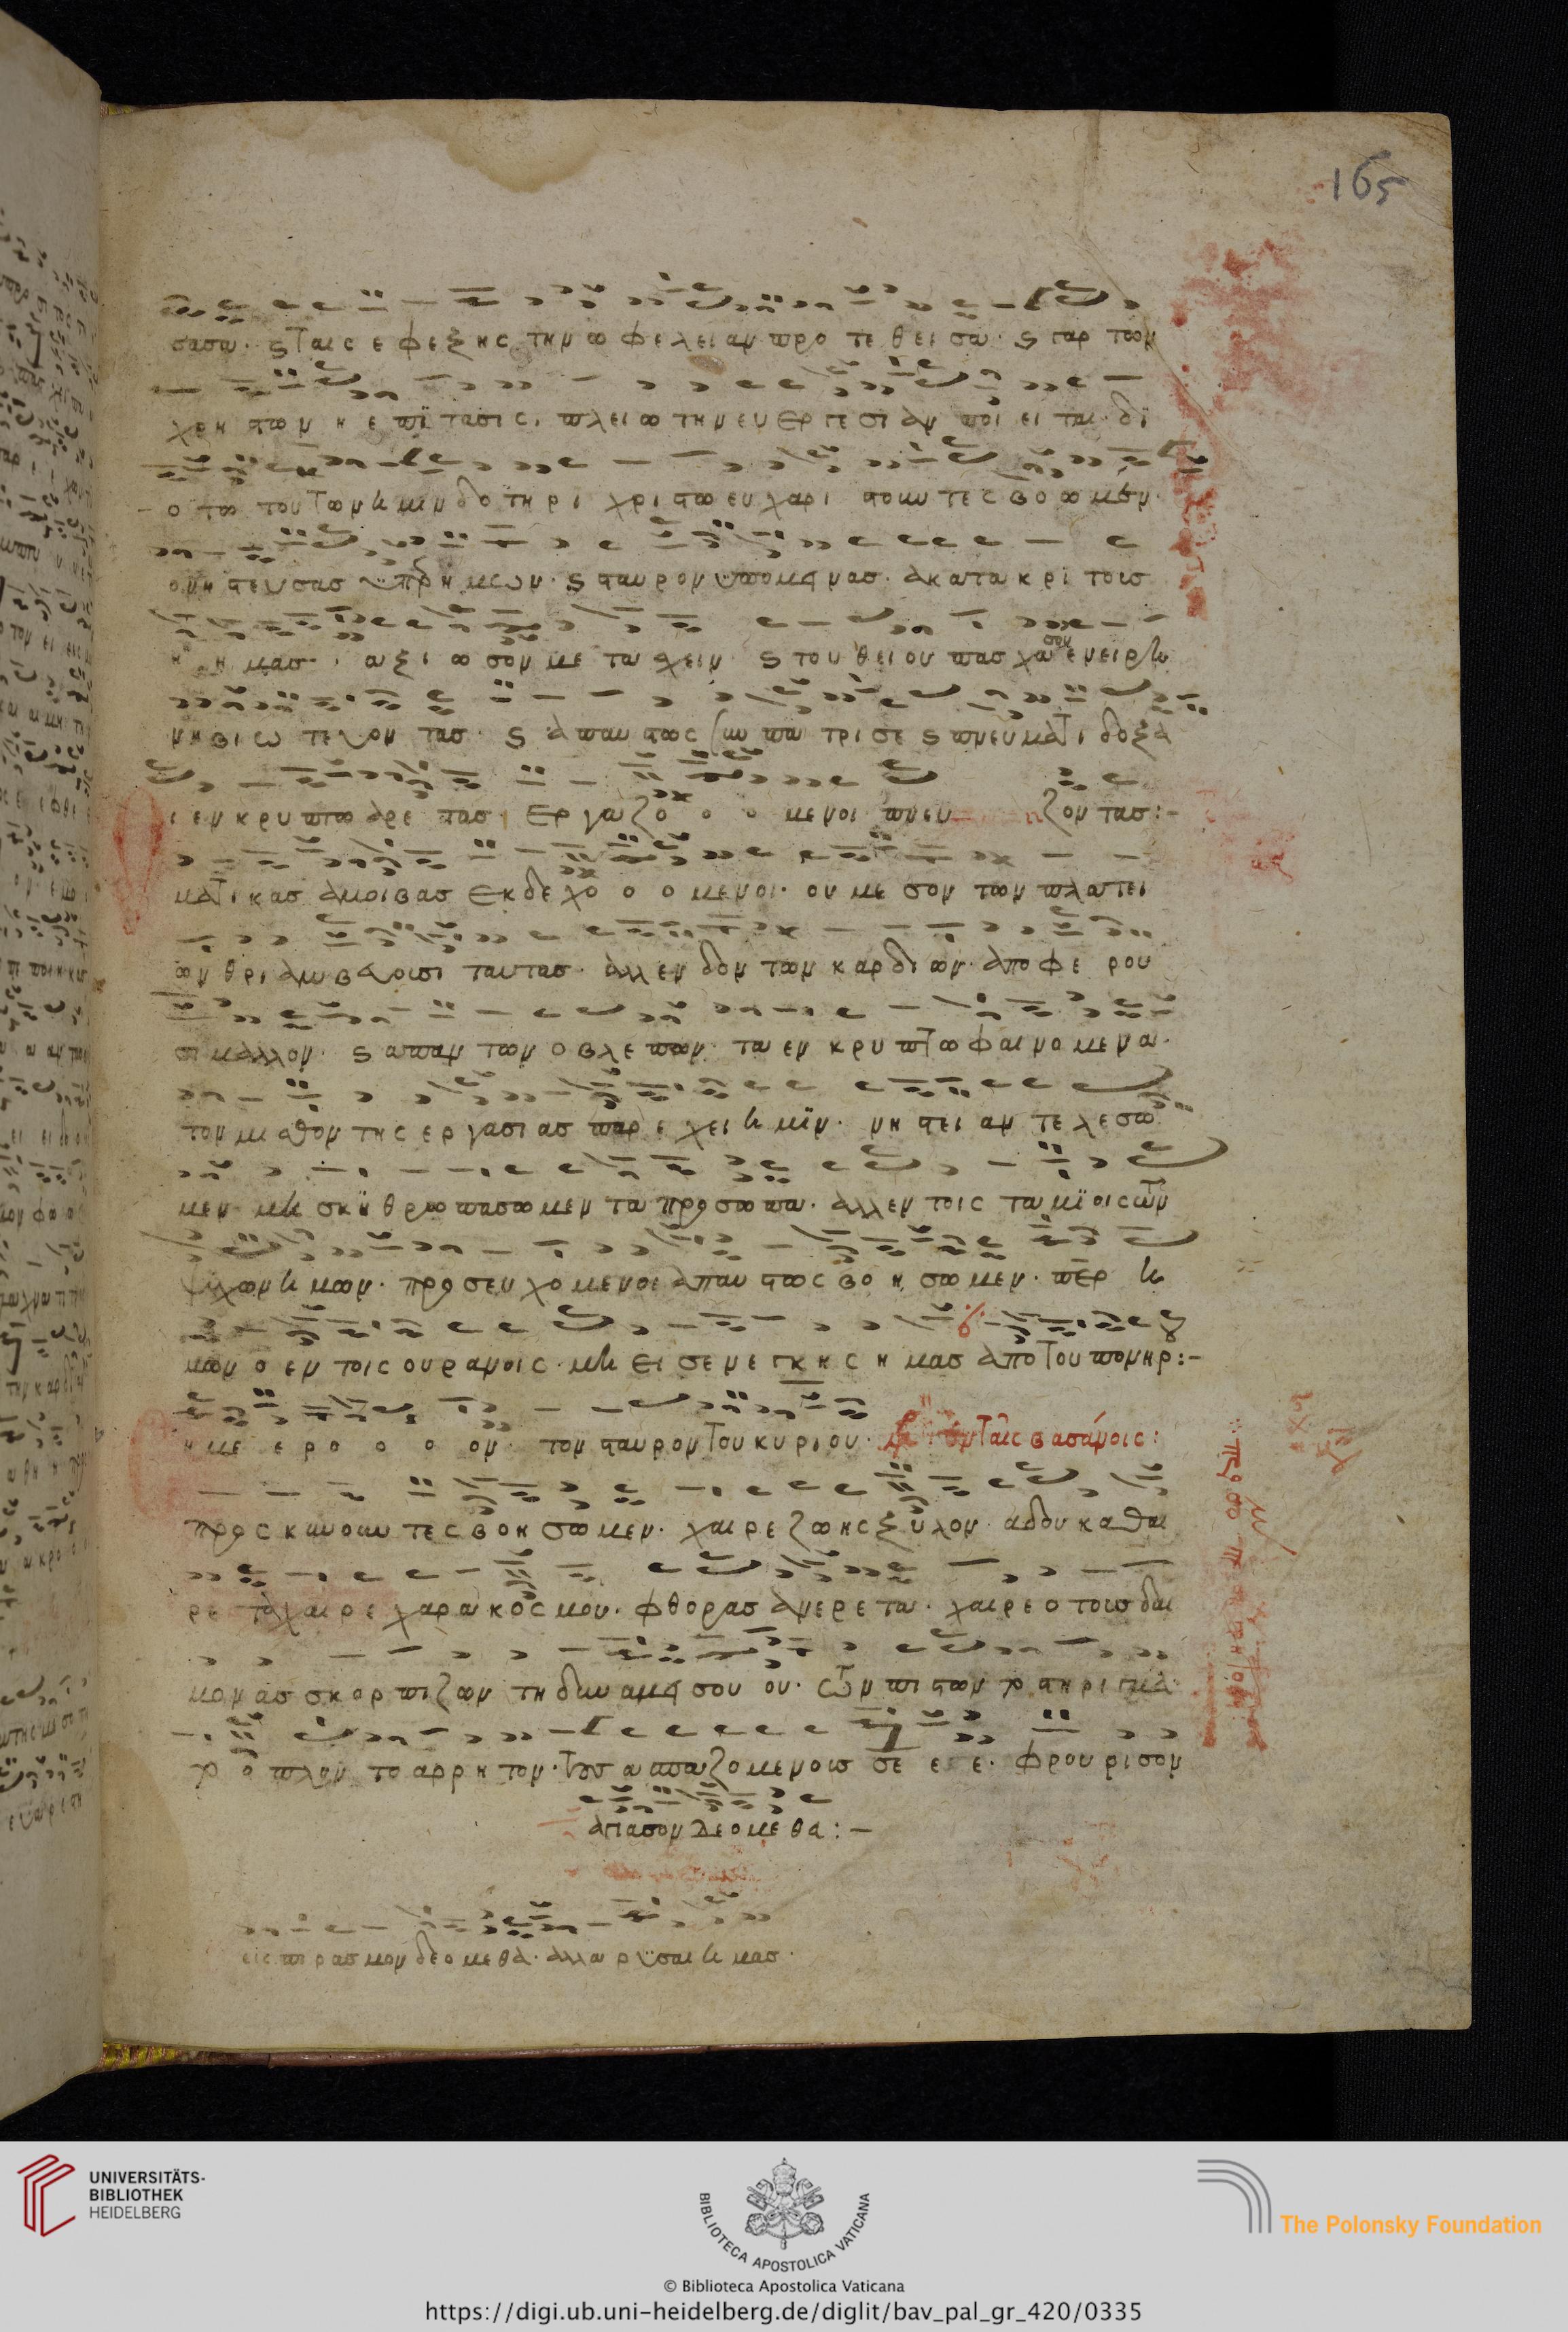 165
σασα· ϛ ταις ε φεξης την ω φελειαν προ τε θει σα· ϛ γαρ των
χρη στων η ε πϊ τασις, πλειω την ευ ερ γε σι αν ποι ει ται· δϊ
ο τω τουτων ημιν δο τη ρι χρι στω ευ χαρι στουν τες βο ω μεν·
ο νη στευσας ϋπερ ημων· ϛ σταυρον ϋπομεινας· ακατα κρι τους
η μας· αξι ω σον με τα σχειν· ϛ του θει ου πασ χα σου εν ειρη
νη βι ω τευον τας· ϛ α παυ στως συν πα τρι σε ϛ πνευματι δοξα
ι εν κρυπτω αρε τας· ερ γαζο ο ο μενοι πνευ ζον τας:-
ματι κας αμοιβας εκδε χο ο ο μενοι· ου με σον των πλατει
ων θρι αμβευουσι ταυτας· αλλ εν δον των καρδι ων· απο φε ρου
σι μαλλον· ϛ απαν των ο βλε πων· τα εν κρυ πτω φαι νο μεν α·
τον μισθον της ερ γασι ας παρ ε χει η μϊν· νη στει αν τε λε σω
μεν μη σκυ θρωπασωμεν τα προσωπα· αλλ εν τοις ταμϊοις των
ψυχων η μων· προσευ χο μενοι απαυ στως βο η σω μεν· περ η
μων ο εν τοις ουρανοις· μη ει σε νε γκης η μας απο του πονηρ:-
η με ε ρο ο ο ον· τον σταυρον του κυριου· εν ταις βασάνοις:
προς κυνουν τες βοη σω μεν· χαιρε ζωης ξυλον αδου κα θαι
ρε τα χαι ρε χαρα κος μου· φθορας αν ερε τα· χαιρε ο τους δαι
μον ας σκορ πιζων τη δυναμει σου ου· των πι στων το στηρι γμα·
το ο πλον το αρρη τον· τους α σπαζομενους σε ε ε· φρου ρισον
αγιασον δεομε θα:-
εις πιρασμον δεο με θα· αλλα ρυσαι η μας·
UNIVERSITÄTS-
BIBLIOTHEK
HEIDELBERG
BIBLIOTECA APOSTOLICA VATICANA
The Polonsky Foundation
© Biblioteca Apostolica Vaticana
https://digi.ub.uni-heidelberg.de/diglit/bav_pal_gr_420/0335